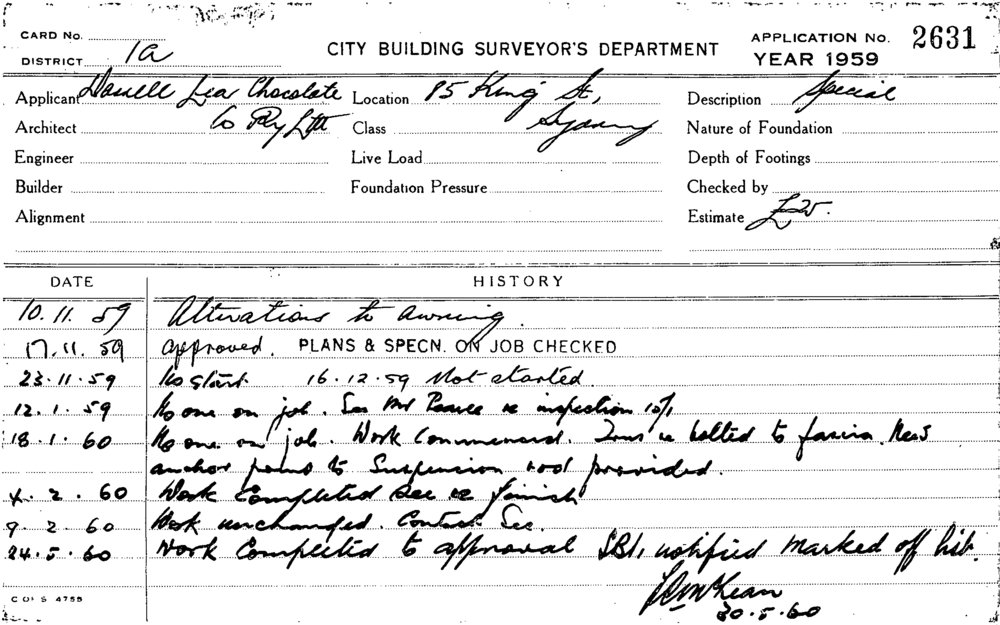 CARD No.
DISTRICT 1a
CITY BUILDING SURVEYOR'S DEPARTMENT
APPLICATION No. 2631
YEAR 1959
Applicant Darrell Lea Chocolate Location 85 King St, Description Special
Architect Co Pty Ltd Class Sydney Nature of Foundation
Engineer Live Load Depth of Footings
Builder Foundation Pressure Checked by
Alignment Estimate £25.
DATE HISTORY
10.11.59 Alterations to awning.
17.11.59 approved. PLANS & SPECN. ON JOB CHECKED
23.11.59 No start. 16.12.59 Not started.
12.1.59 No one on job. See Mr Pearce re inspection
18.1.60 No one on job. Work Commenced. bolted to fascia. New
anchor points to Suspension rod provided.
4.2.60 Work Completed See re finish
9.2.60 Work unchanged. Contact Sec.
24.5.60 Work Completed to approval notified Marked off
30.5.60
C OF S 4755